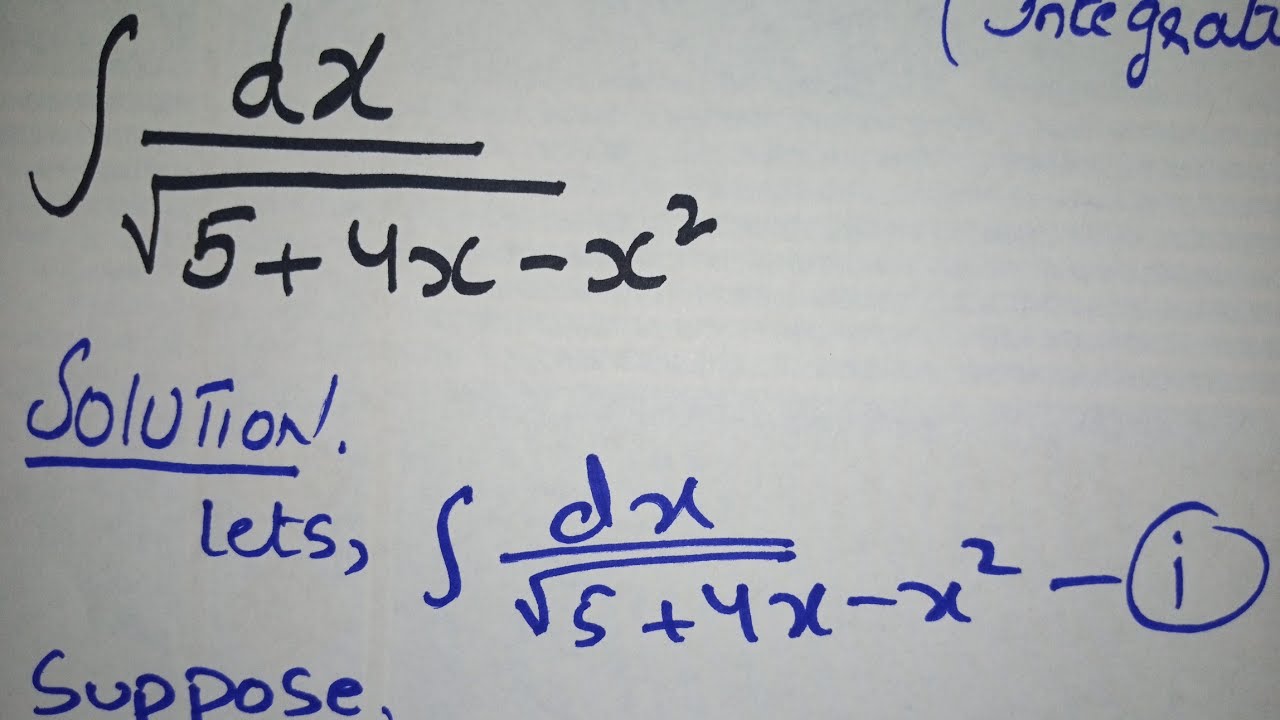 (Integrat
∫ dx / √5+4x-x²
Solution.
lets, ∫ dx / √5+4x-x² - (i)
Suppose,